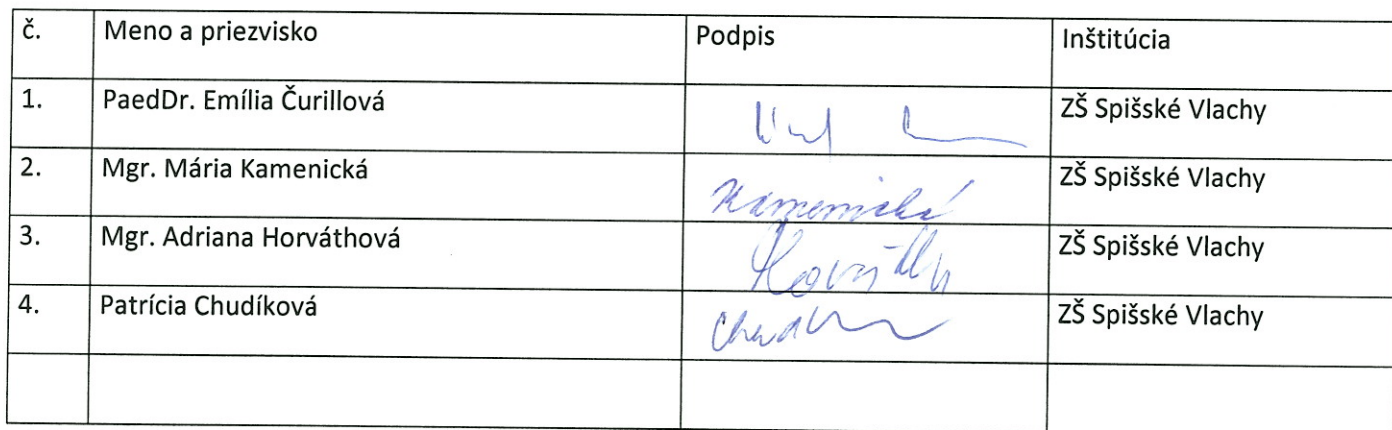 č. Meno a priezvisko Podpis Inštitúcia
1. PaedDr. Emília Čurillová ZŠ Spišské Vlachy
2. Mgr. Mária Kamenická Kamenická ZŠ Spišské Vlachy
3. Mgr. Adriana Horváthová ZŠ Spišské Vlachy
4. Patrícia Chudíková ZŠ Spišské Vlachy